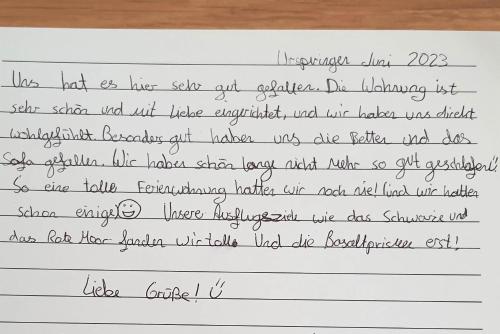 Urspringen Juni 2023
Uns hat es hier sehr gut gefallen. Die Wohnung ist
sehr schön und mit Liebe eingerichtet, und wir haben uns direkt
wohlgefühlt. Besonders gut haben uns die Betten und das
Sofa gefallen. Wir haben schön lange nicht mehr so gut geschlafen ü.
So eine tolle Ferienwohnung hatten wir noch nie! (und wir hatten
schon einige! ☺) Unsere Ausflugsziele wie das Schwarze und
das Rote Moor fanden wir toll. Und die Basaltprismen erst!
Liebe Grüße! Ü